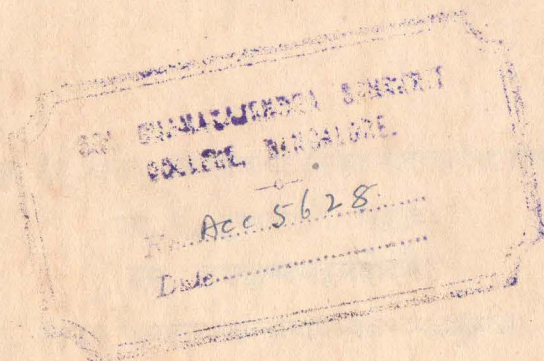 SRI CHAMARAJENDRA SANSKRIT
COLLEGE, BANGALORE.
No. Acc 5628
Date